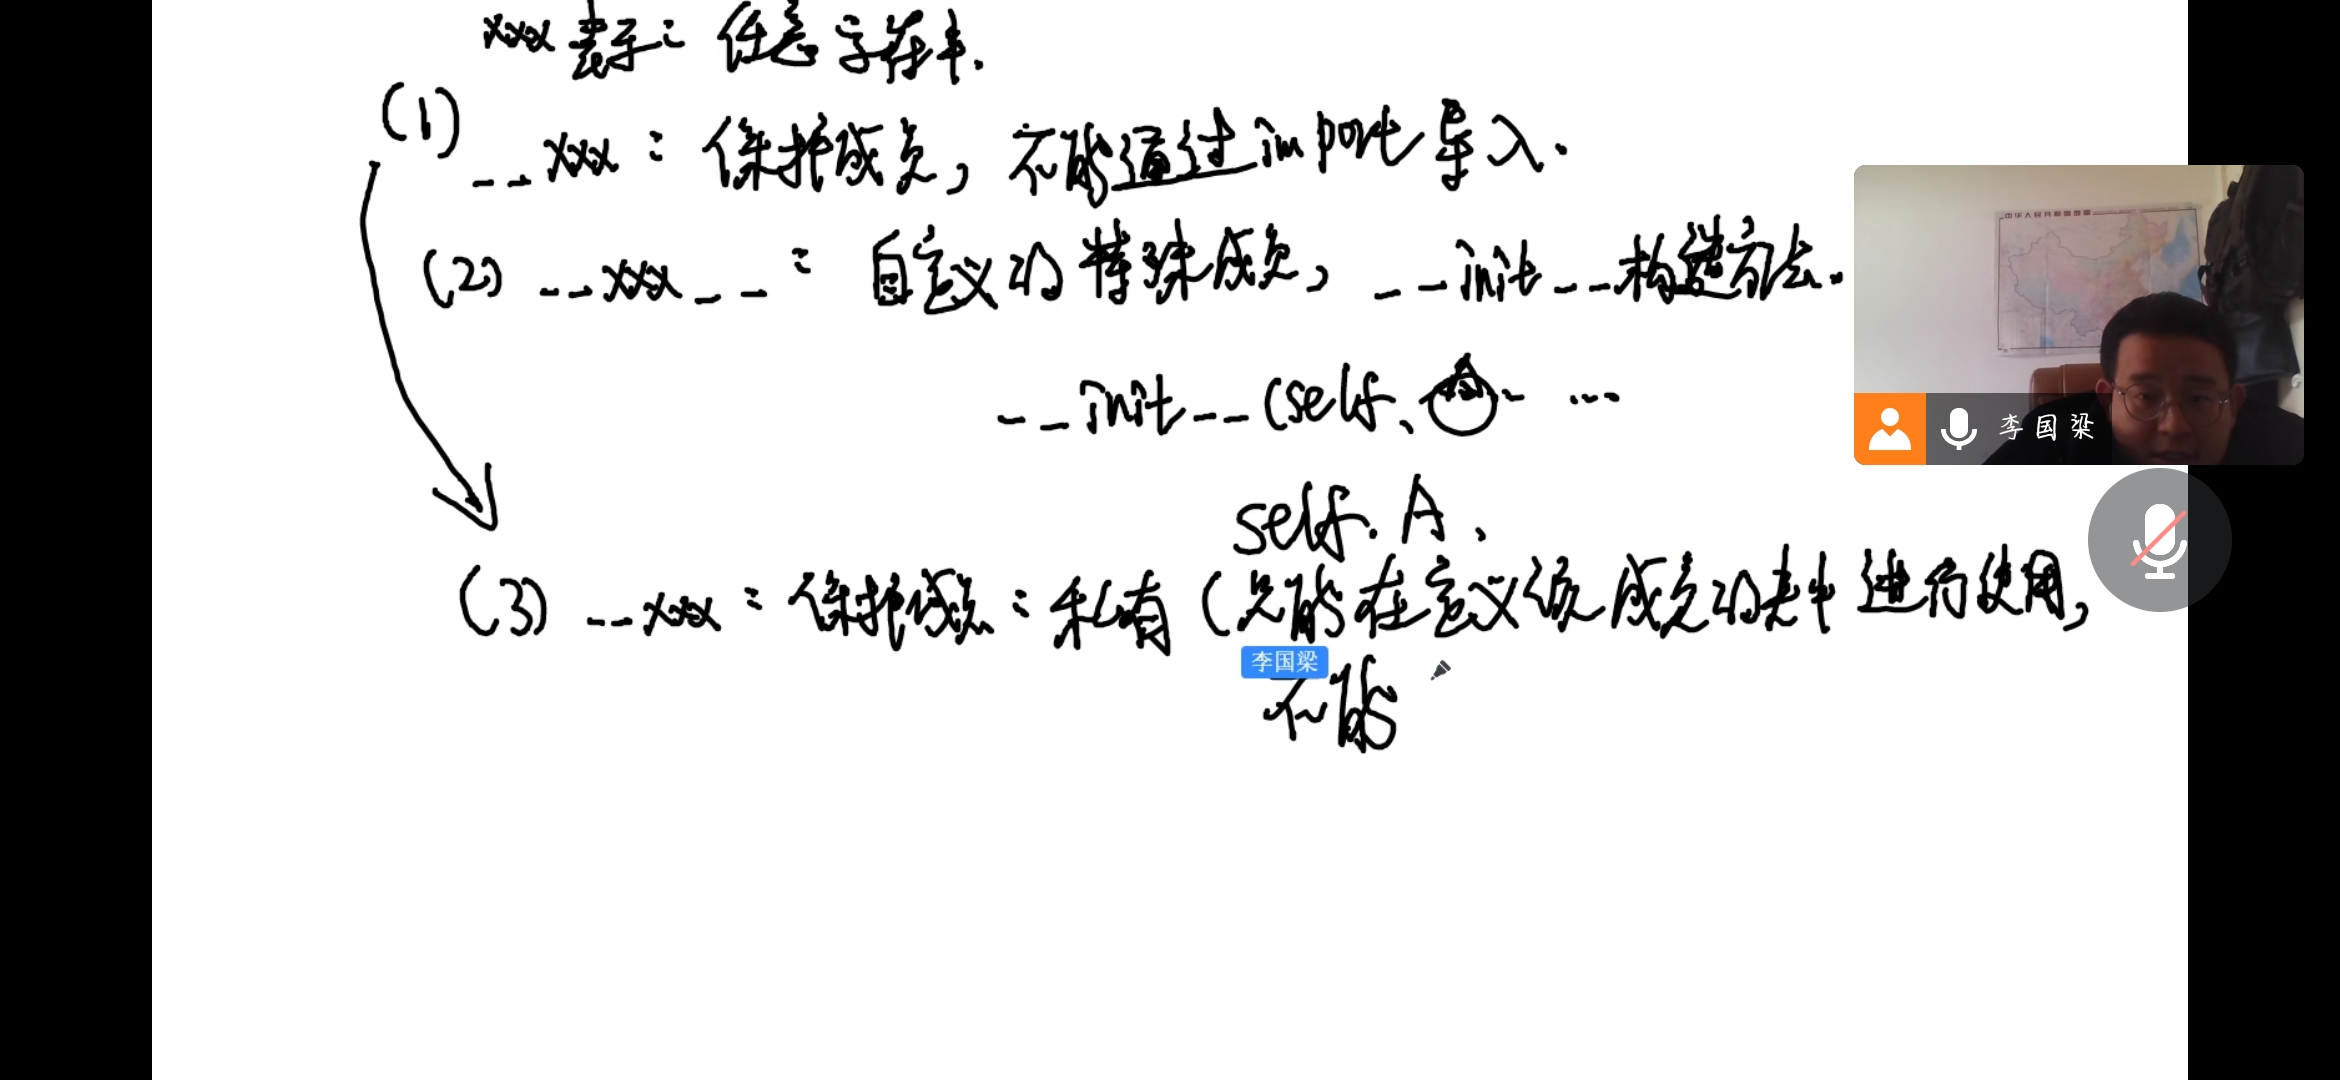 xxx表示：任意字符串.
(1) __xxx：保护成员，不能通过import导入.
(2) __xxx__：自定义的特殊成员，__init__构造方法.
__init__(self、 ...
self.A、
(3) __xxx：保护成员：私有(只能在定义该成员的类中进行使用，
不能
李国梁
中华人民共和国地图
李国梁